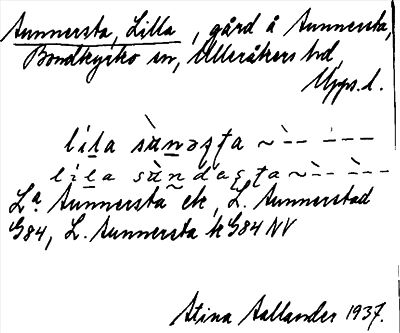 Sunnersta, Lilla, gård å Sunnersta,
Bondkyrko sn, Ulleråkers hd,
Upps. l.
lila sùnəsta ~ ̀ - - ̇ - - -
lila sùndasta ~ ̀ - - ̀ - - -
La. Sunnersta ek, L. Sunnerstad
G84, L. Sunnersta k G84 NV
Stina Sallander 1937.